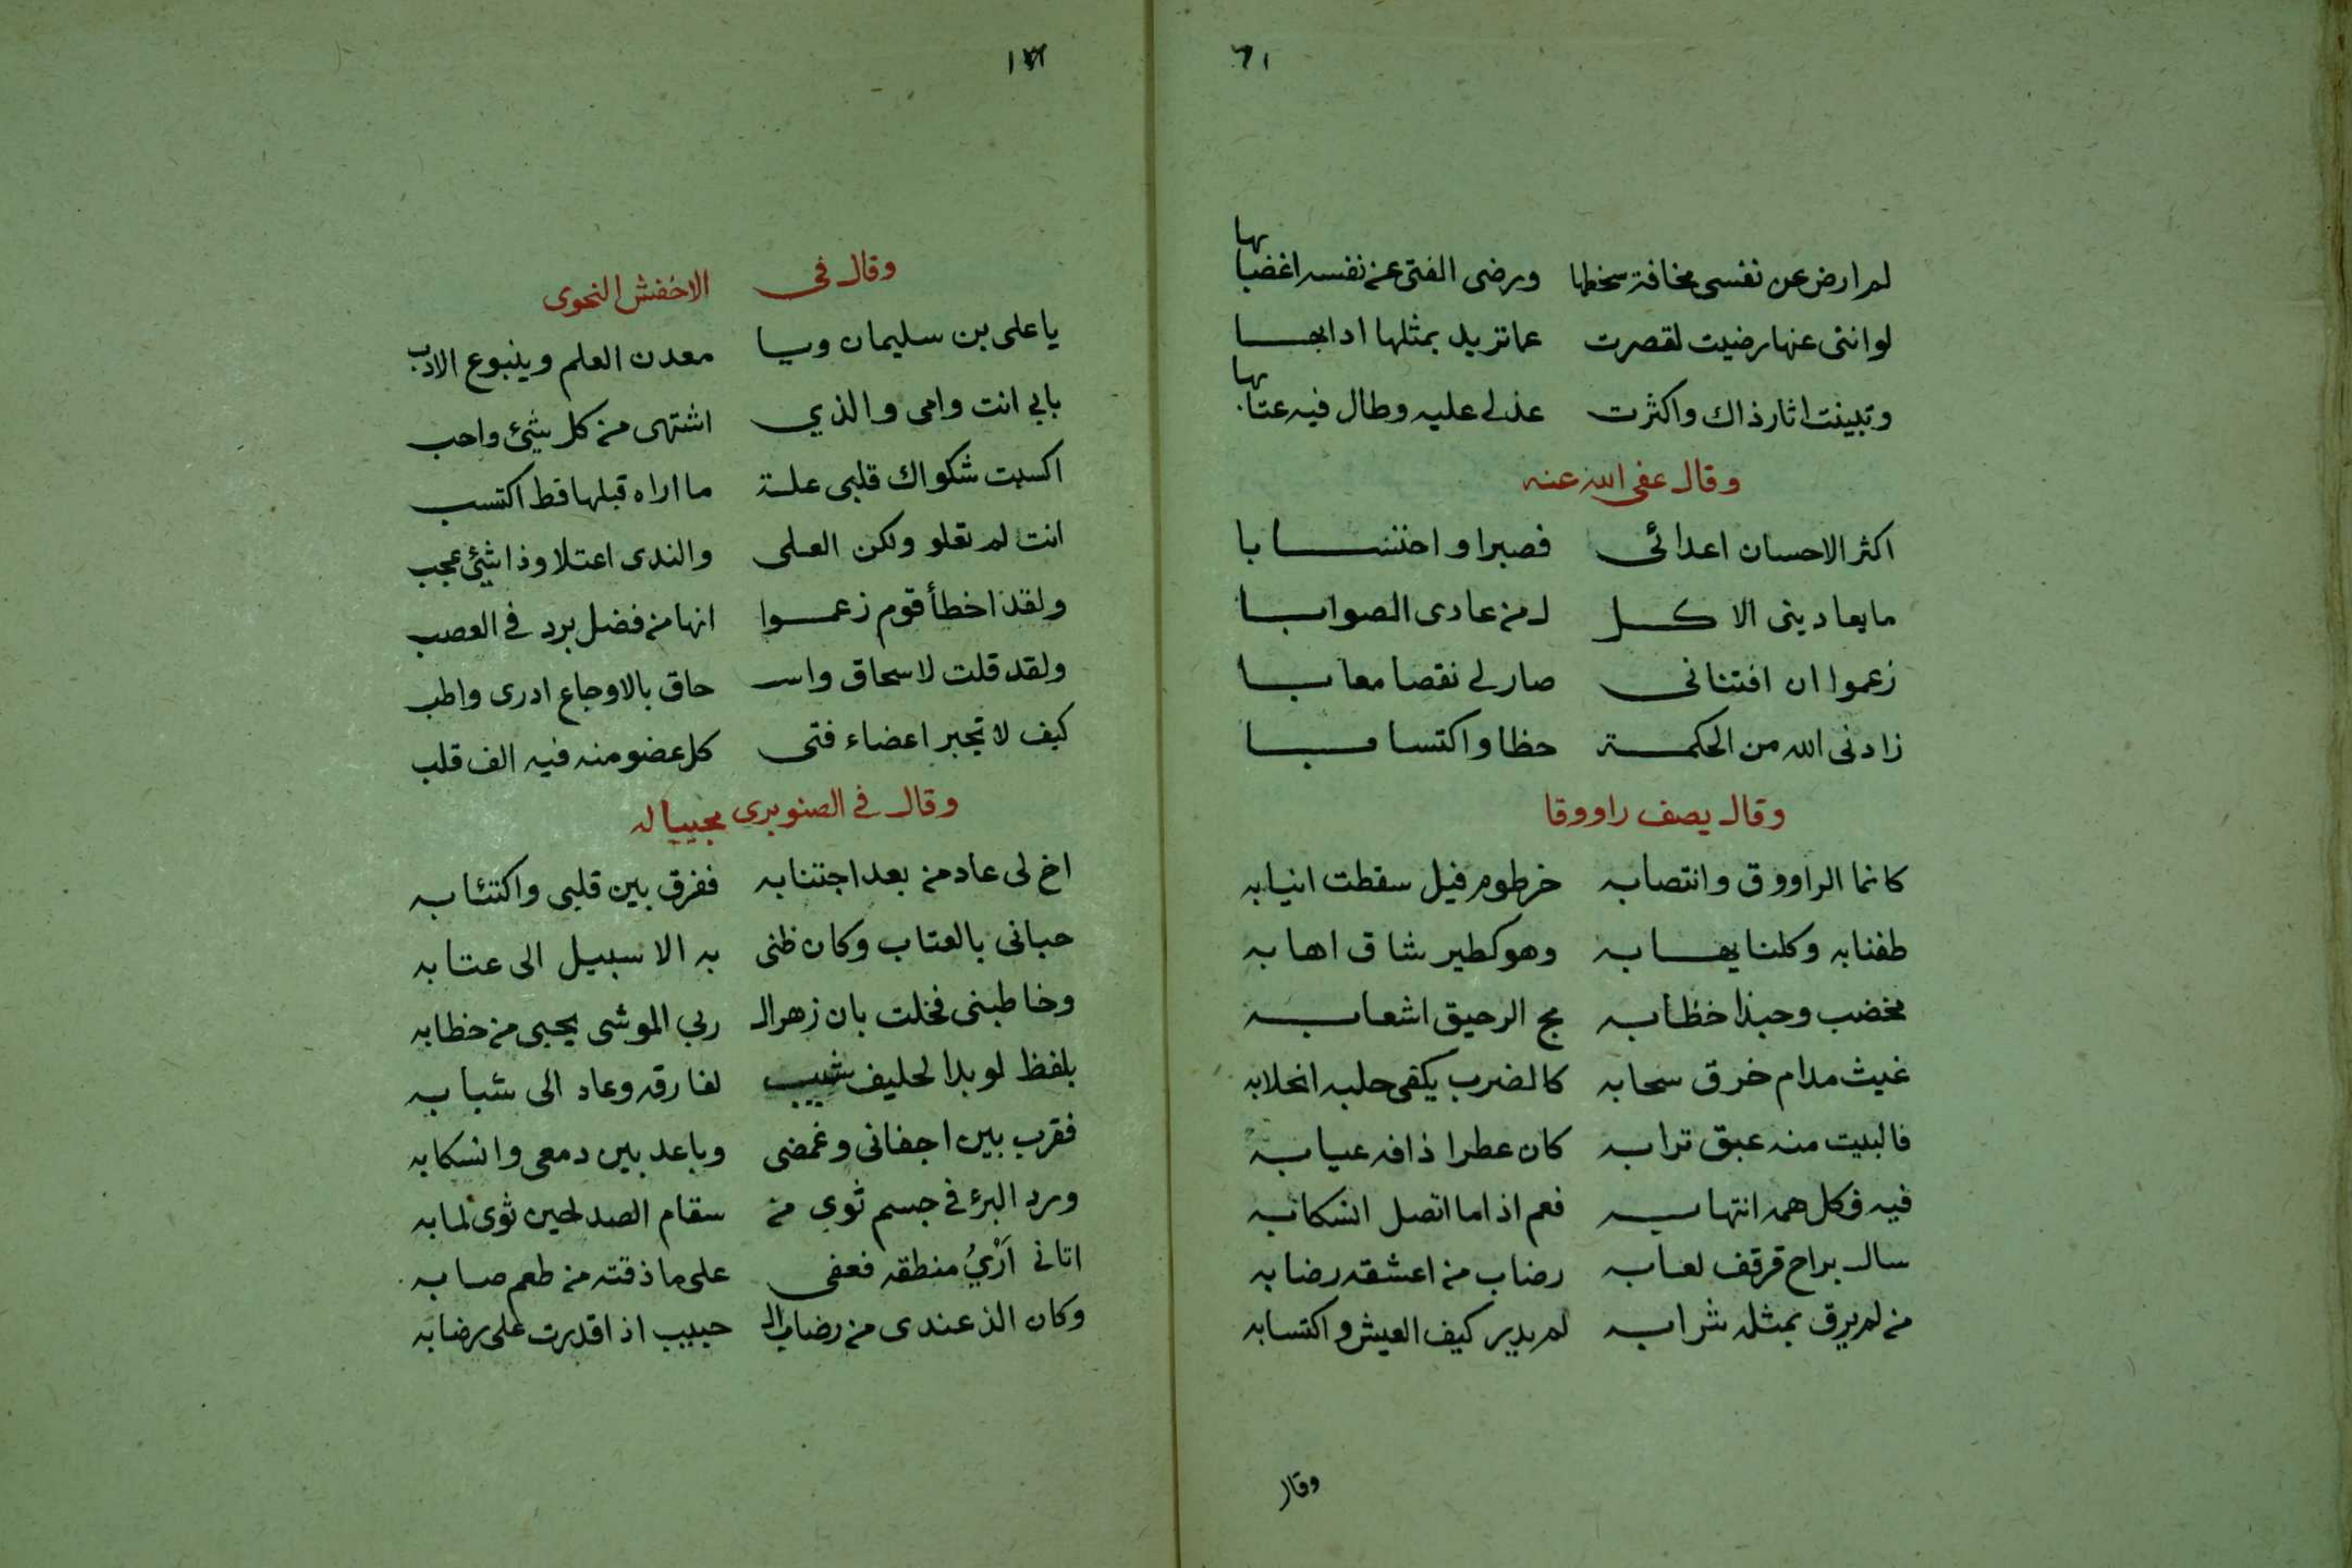 ٦١
لم ارض عن نفسى مخافة سخطها ورضى الفتى عن نفسه اغضابها
لو اننى عنها رضيت لقصرت عما تريد بمثلها ادابها
وتبينت اثار ذاك واكثرت عذلي عليه وطال فيه عتابها
وقال عفى الله عنه
اكثر الاحسان اعدائى فصبرا واحتسابا
ما يعادينى الا كل من عادى الصوابا
زعموا ان افتنانى صار لي نقصا معابا
زادنى الله من الحكمة حظا واكتسابا
وقال يصف راووقا
كانما الراووق وانتصابه خرطوم فيل سقطت انيابه
طفنا به وكلنا يهابه وهو كطير شاق اهابه
مخضب وحبذا خظابه مج الرحيق اشعابه
غيث مدام خرق سحابه كالضرب يكفى حلبه انحلابه
فالبيت منه عبق ترابه كان عطرا ذافه عيابه
فيه فكل همه انتهابه فعم اذا ما اتصل انسكابه
سال براح قرقف لعابه رضاب من اعشقه رضابه
من لم يرق بمثله شرابه لم يدر كيف العيش واكتسابه
وقال
وقال فى الاخفش النحوى
يا على بن سليمان ويا معدن العلم وينبوع الادب
بابي انت وامى والذي اشتهى من كل شيئ واحب
اكسبت شكواك قلبى علة ما اراه قبلها قط اكتسب
انت لم تعلو ولكن العلى والندى اعتلا وذا شيئ عجب
ولقد اخطأ قوم زعموا انها من فضل برد في العصب
ولقد قلت لاسحاق واسـ حاق بالاوجاع ادرى واطب
كيف لا تجبر اعضاء فتى كل عضو منه فيه الف قلب
وقال في الصنوبرى مجيبا له
اخ لى عاد من بعد اجتنابه ففرق بين قلبى واكتئابه
حبانى بالعتاب وكان ظنى به الا سبيل الى عتابه
وخاطبنى فخلت بان زهر الـ ربي الموشى يحبى من خظابه
بلفظ لو بدا لحليف شيب لفارقه وعاد الى شبابه
فقرب بين اجفانى وغمضى وباعد بين دمعى وانسكابه
ورد البرء في جسم ثوى من سقام الصد لحين ثوى لمابه
اتانى اَرْيُ منطقه فعفى على ما ذقته من طعم صابه
وكان الذ عندى من رضاب الـ حبيب اذا قدرت على رضابه